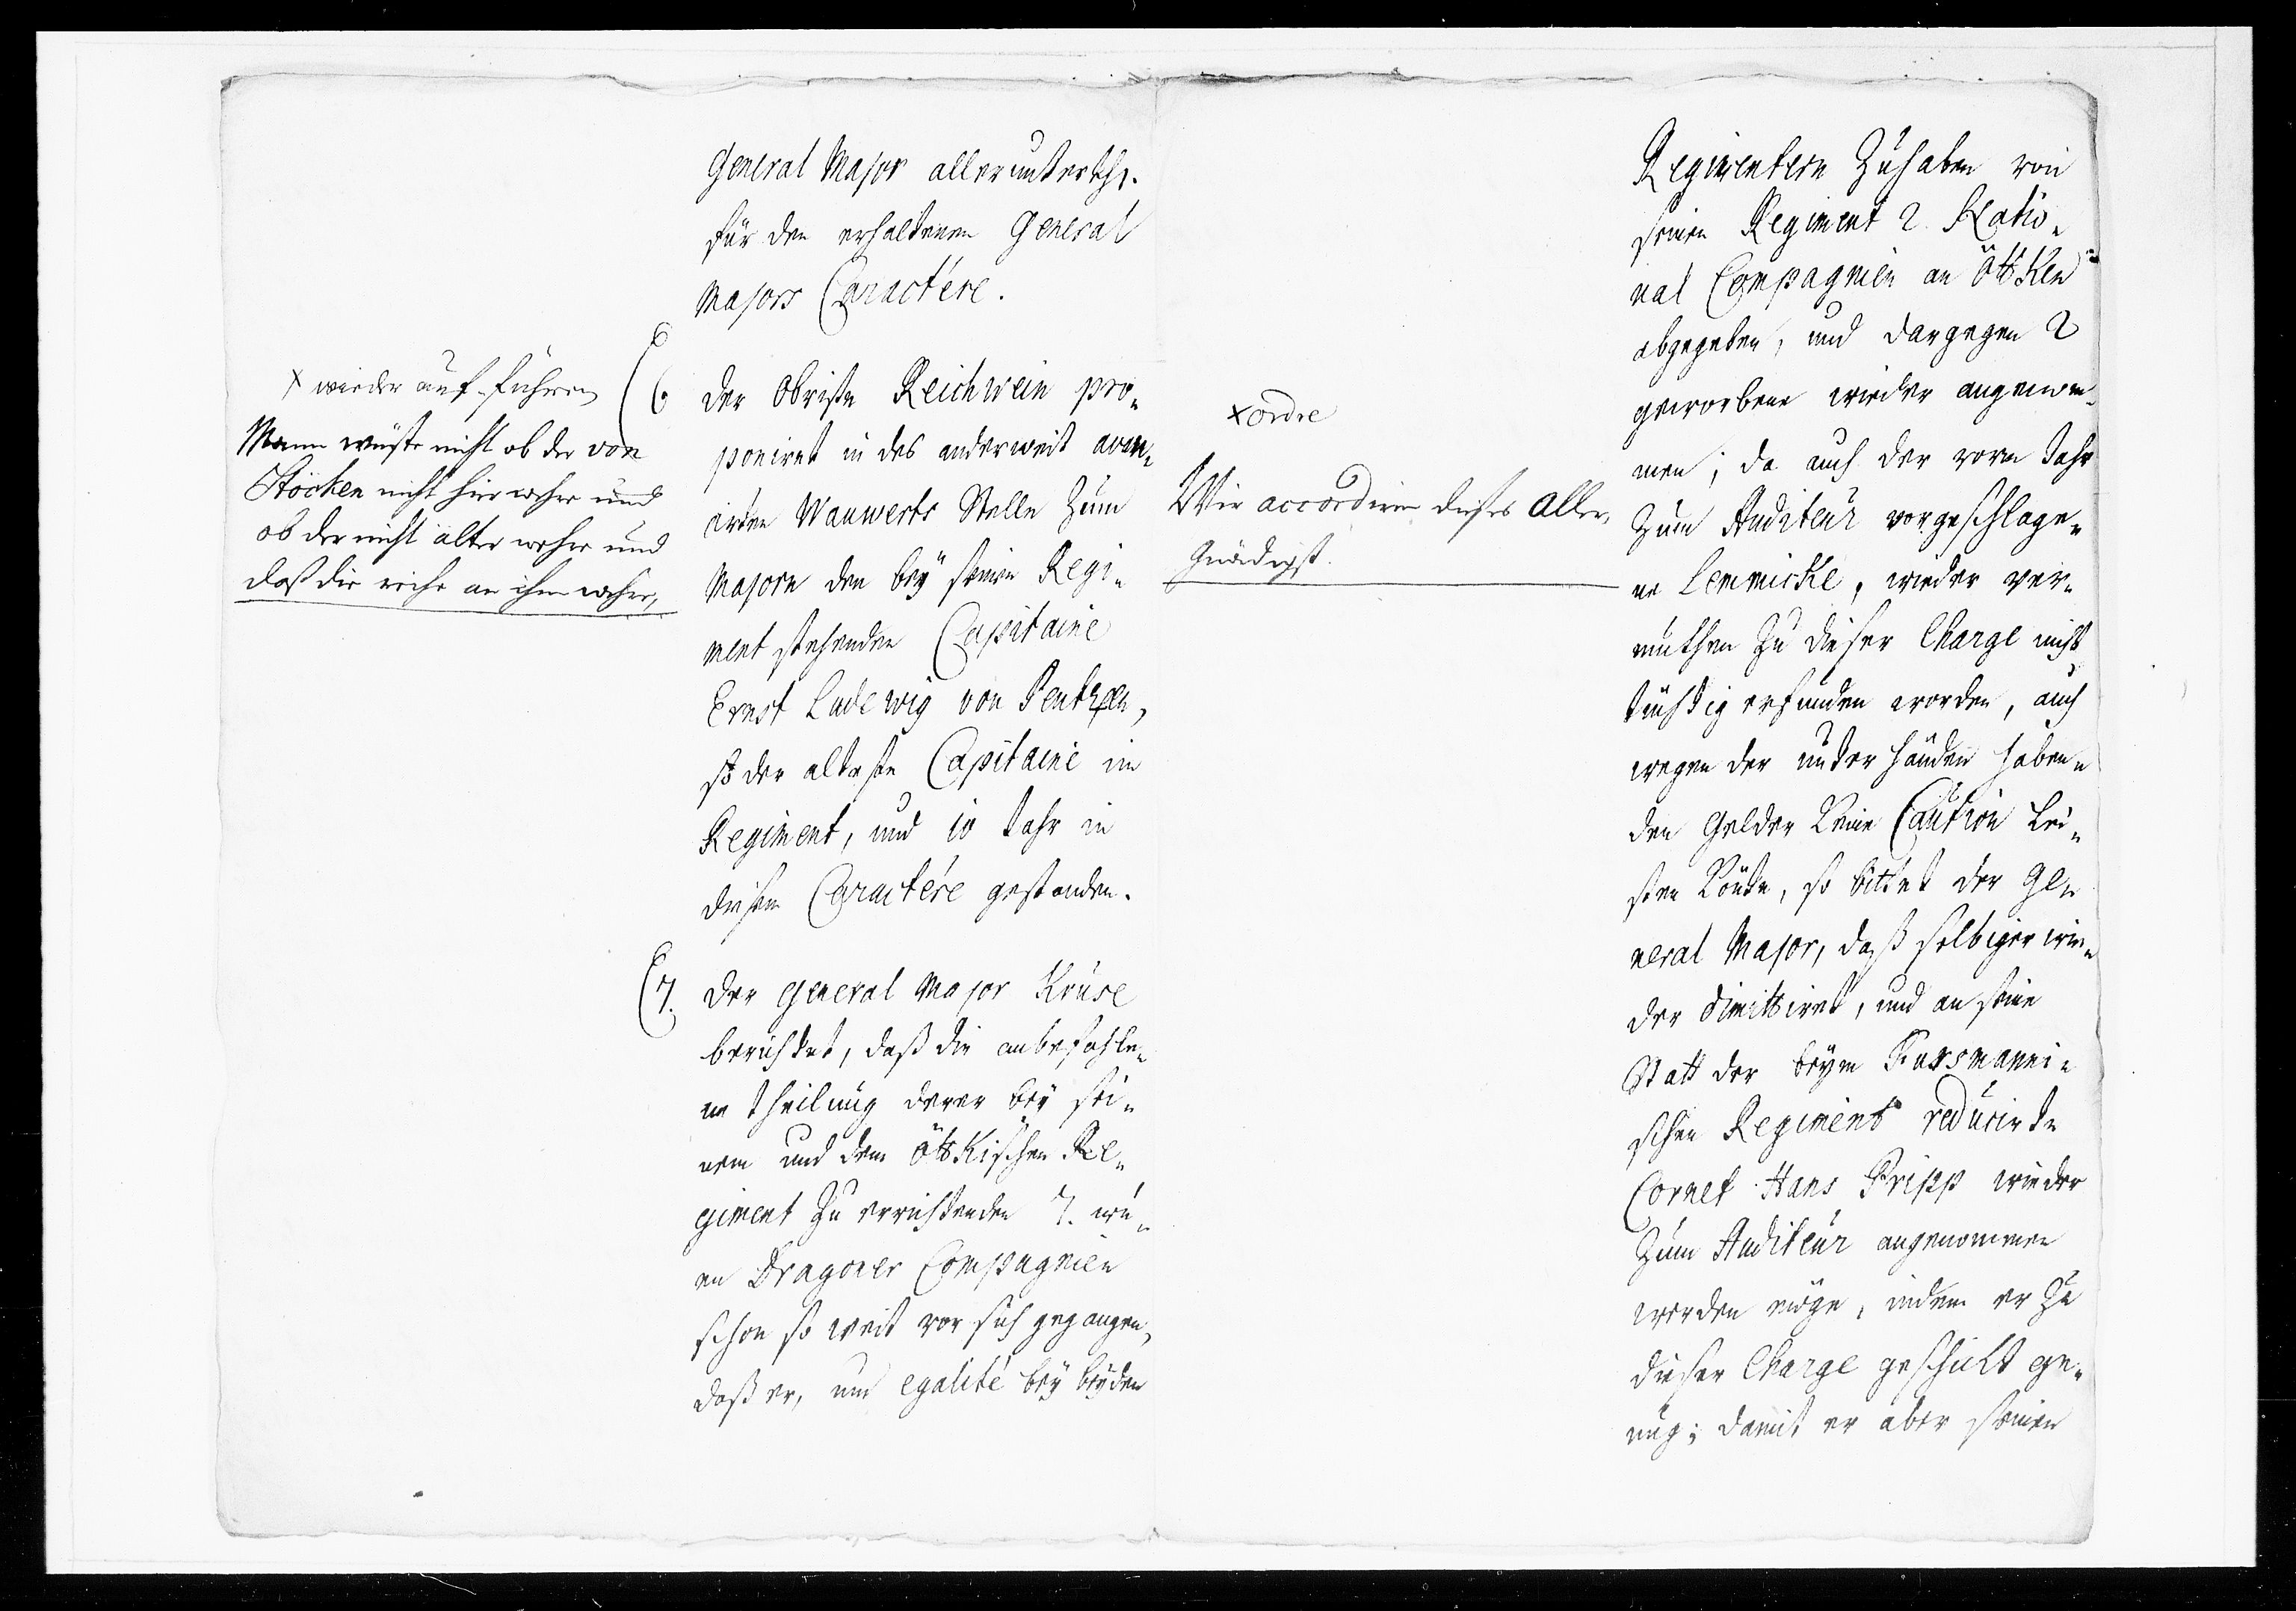 General Major allerunterthg.
für den erhaltenen General
Majors Caractére.
× wieder auf-führen
Mann wüste nicht ob der von
Stöcken nicht hier wehre und
ob der nicht älter wehre und
daß die reihe an ihm wehre,
6 der Obriste Reichwein pro-
poniret in des anderweit avan-
cirten Wauwerts Stelle zum
Majorn den bey seinen Regi-
ment stehenden Capitaine
Ernst Ludewig von Pentzen,
so der älteste Capitaine im
Regiment, und 10 Jahr in
diesem Caractére gestanden.
7. der General Major Kruse
berichtet, daß die anbefohle-
ne theilung derer bey sei-
nem und dem Öttkischen Re-
giment zu errichtenden 7. neu-
en Dragoner Compagnien
schon so weit vor sich gegangen,
daß er, um egalité bey beyden
× ordre
Wir accordiren dieses Aller-
gnädigst.
Regimentern zu haben von
seinen Regiment 2 Natio-
nal Compagnien an Öttken
abgegeben, und dargegen 2
geworbene wieder angenom-
men; da auch der vorm Jahr
zum Auditeur vorgeschlage-
ne Lemmicke, wieder ver-
muthen zu dieser Charge nicht
tüchtig erfunden worden, auch
wegen der unter händen haben-
den Gelder keine Caution lei-
sten könte, so bittet der Ge-
neral Major, daß selbiger wie-
der dimittiret, und an seine
Statt der beym Rossmanni-
schen Regiment reducirte
Cornet Hans Pripp wieder
zum Auditeur angenommen
werden möge, indem er zu
dieser Charge geschickt ge-
nug; damit er aber seinen